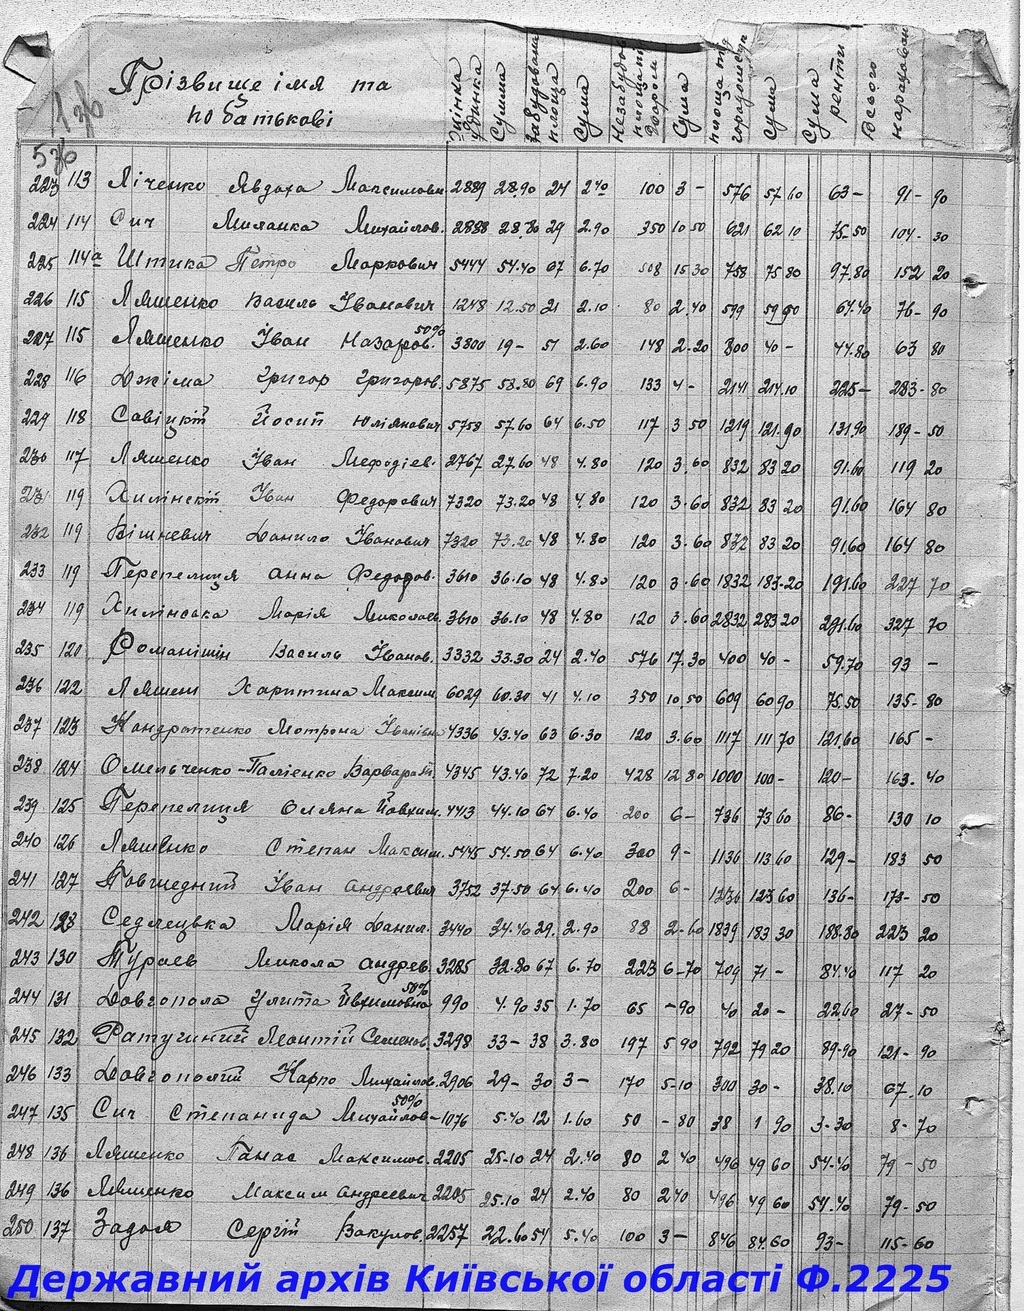 136
Прізвище імя та
по батькові
Оцінка будинка
Сумма
Забудована площа
Сума
Незабудов. площа
Сума
площа під
Сума
Сума ренти
Всього нараховано
536
223 113 Ліченко Явдоха Максимовн. 2889 28.90 24 2.40 100 3- 576 57 60 63- 91-90
224 114 Сич Михайлов. 2888 28.80 29 2.90 350 10 50 621 62 10 75-50 104-30
225 114а Штика Петро Маркович 5444 54.40 67 6.70 508 15 30 758 75 80 97.80 152 20
226 115 Ляшенко Василь Іванович 1248 12.50 21 2.10 80 2.40 599 59 90 64.40 76-90
227 115 Ляшенко Іван Назаров. 50% 3800 19- 51 2.60 148 2.20 800 40- 44.80 63 80
228 116 Джіма Григор Григоров. 5875 58.80 69 6.90 133 4- 2141 214.10 225- 283-80
229 118 Савіцкій Йосип Юліянович 5758 57.60 64 6.50 117 3 50 1219 121.90 131.90 189-50
230 117 Ляшенко Іван Мефодіев. 2767 27.60 48 4.80 120 3.60 832 83 20 91.60 119 20
231 119 Хилінскій Іван Федорович 7320 73.20 48 4.80 120 3.60 832 83 20 91.60 164 80
232 119 Вішневич Данило Іванович 7320 73.20 48 4.80 120 3.60 832 83 20 91.60 164 80
233 119 Перепелиця Анна Федоров. 3610 36.10 48 4.80 120 3.60 1832 183.20 191.60 227 70
234 119 Хилінська Марія Миколаев. 3610 36.10 48 4.80 120 3.60 2832 283 20 291.60 327 70
235 120 Романішин Василь Іванов. 3332 33.30 24 2.40 576 17.30 400 40- 59.70 93 -
236 122 Харитина Максим. 6029 60.30 41 4.10 350 10.50 609 60 90 75.50 135-80
237 123 Кондратенко Мотрона Іванівна 4336 43.40 63 6.30 120 3.60 1117 111 70 121.60 165 -
238 124 Омельченко-Палієнко Варвара 4345 43.40 72 7.20 428 12 80 1000 100- 120- 163.40
239 125 Перепелиця Оляна Йовхим. 4413 44.10 64 6.40 200 6- 736 73 60 86- 130 10
240 126 Ляшенко Степан Максим. 5445 54.50 64 6.40 300 9- 1136 113 60 129- 183 50
241 127 Іван Андреевич 3752 37.50 64 6.40 200 6- 1236 123 60 136- 173-50
242 128 Седлецька Марія Данил. 3440 34.40 29. 2.90 88 2-60 1839 183 30 188.80 223 20
243 130 Тураев Микола Андрев. 3285 32.80 67 6.70 223 6-70 709 71- 84.40 117 20
244 131 Довгопола Улита Йвхимовна 50% 990 4.90 35 1.70 65 -90 40 20- 22.60 27-50
245 132 Ратушний Леонтій Семенов. 3298 33- 38 3.80 197 5 90 792 79 20 89-90 121-90
246 133 Довгополій Карпо Михайлов. 2906 29- 30 3- 170 5-10 300 30- 38.10 67.10
247 135 Сич Степанида Михайлов- 50% 1076 5.40 12 1.60 50 -80 38 1 90 3-30 8-70
248 136 Ляшенко Панас Максимов. 2205 25-10 24 2.40 80 2 40 496 49 60 54.40 79-50
249 136 Ляшенко Максим Андреевич 2205 25.10 24 2.40 80 2 40 496 49 60 54.40 79-50
250 137 Задоя Сергій Вакулов. 2257 22.60 54 5.40 100 3- 846 84.60 93- 115-60
Державний архів Київської області Ф.2225